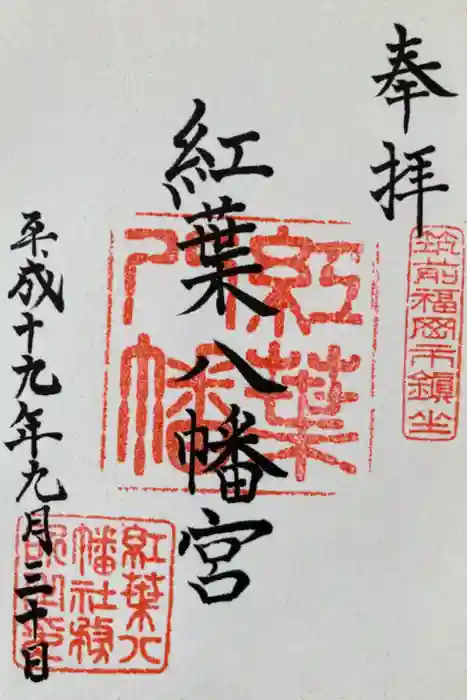 奉拝
筑前福岡市鎮坐
紅葉八幡宮
紅葉
八幡
平成十九年九月三十日
紅葉八
幡社務